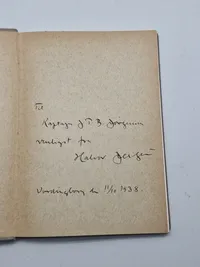 Til
Kaptajn J. P. B. Jørgensen
venligst fra
Halvor Jessen
Vordingborg d. 11/10 1938.